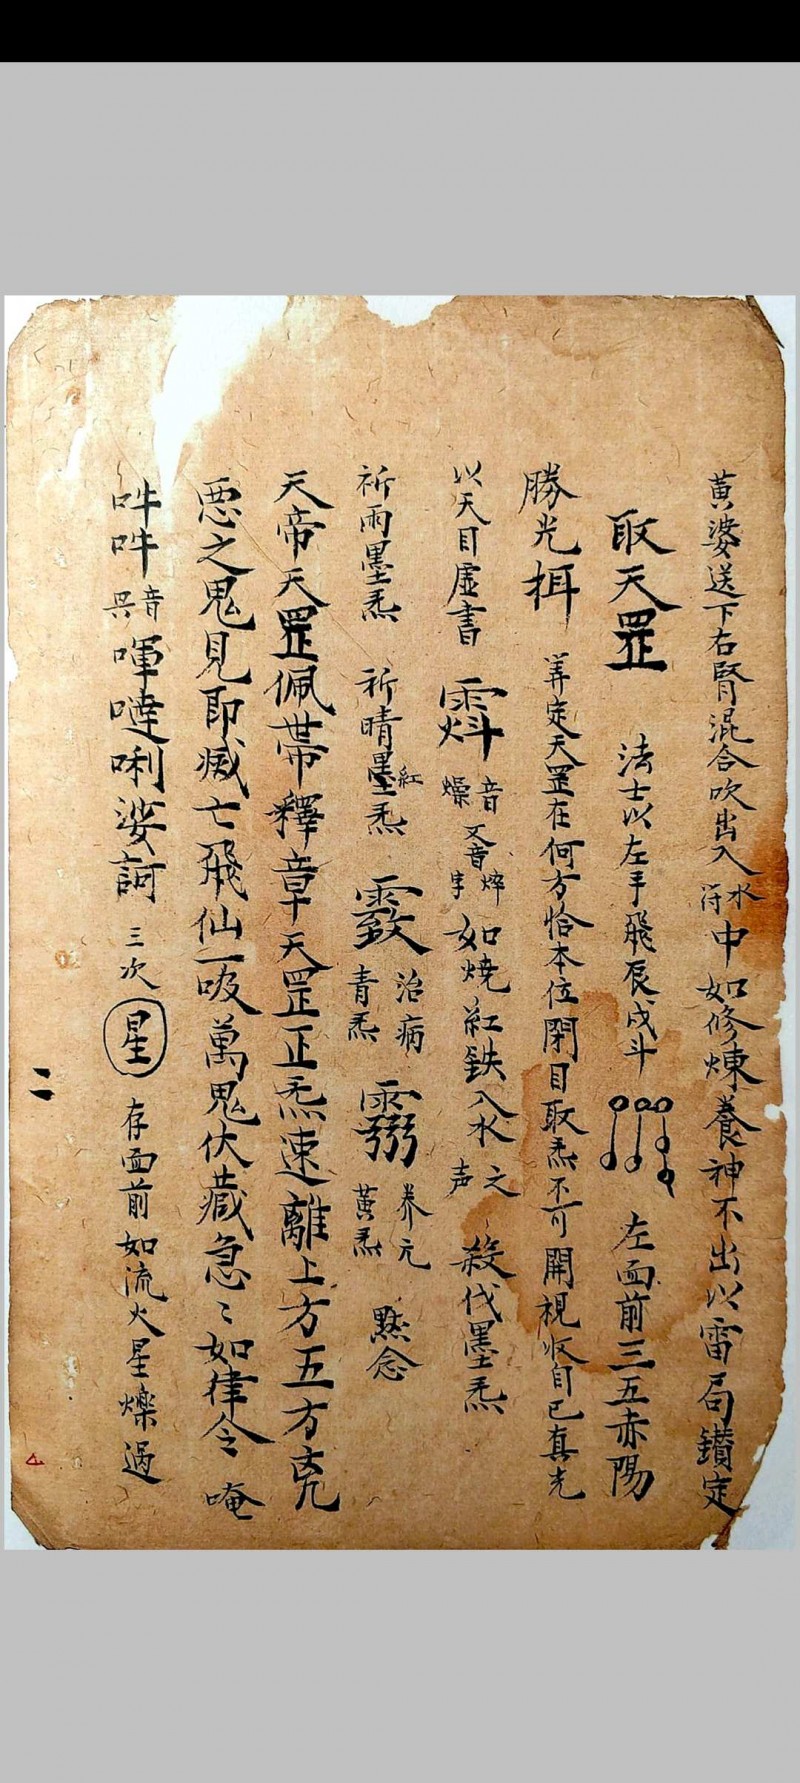 黃婆送下右腎混合吹出入水符中如修煉養神不出以雷局鑚定
取天罡 法士以左手飛辰戌斗 左面前三五赤陽
勝光 筭定天罡在何方恰本位閉目取炁不可開視收自己真光
以天目虛書 音燥又音焠字 如燒紅鉄入水之声 殺伐墨炁
祈雨墨炁 祈晴墨紅炁 治病青炁 养元黃炁 黙念
天帝天罡佩帶釋章天罡正炁速離上方五方兇
惡之鬼見即滅亡飛仙一吸萬鬼伏藏急〻如律令唵
吽吽音吳㖶噠唎娑訶三次 星 存面前如流火星爍過
二